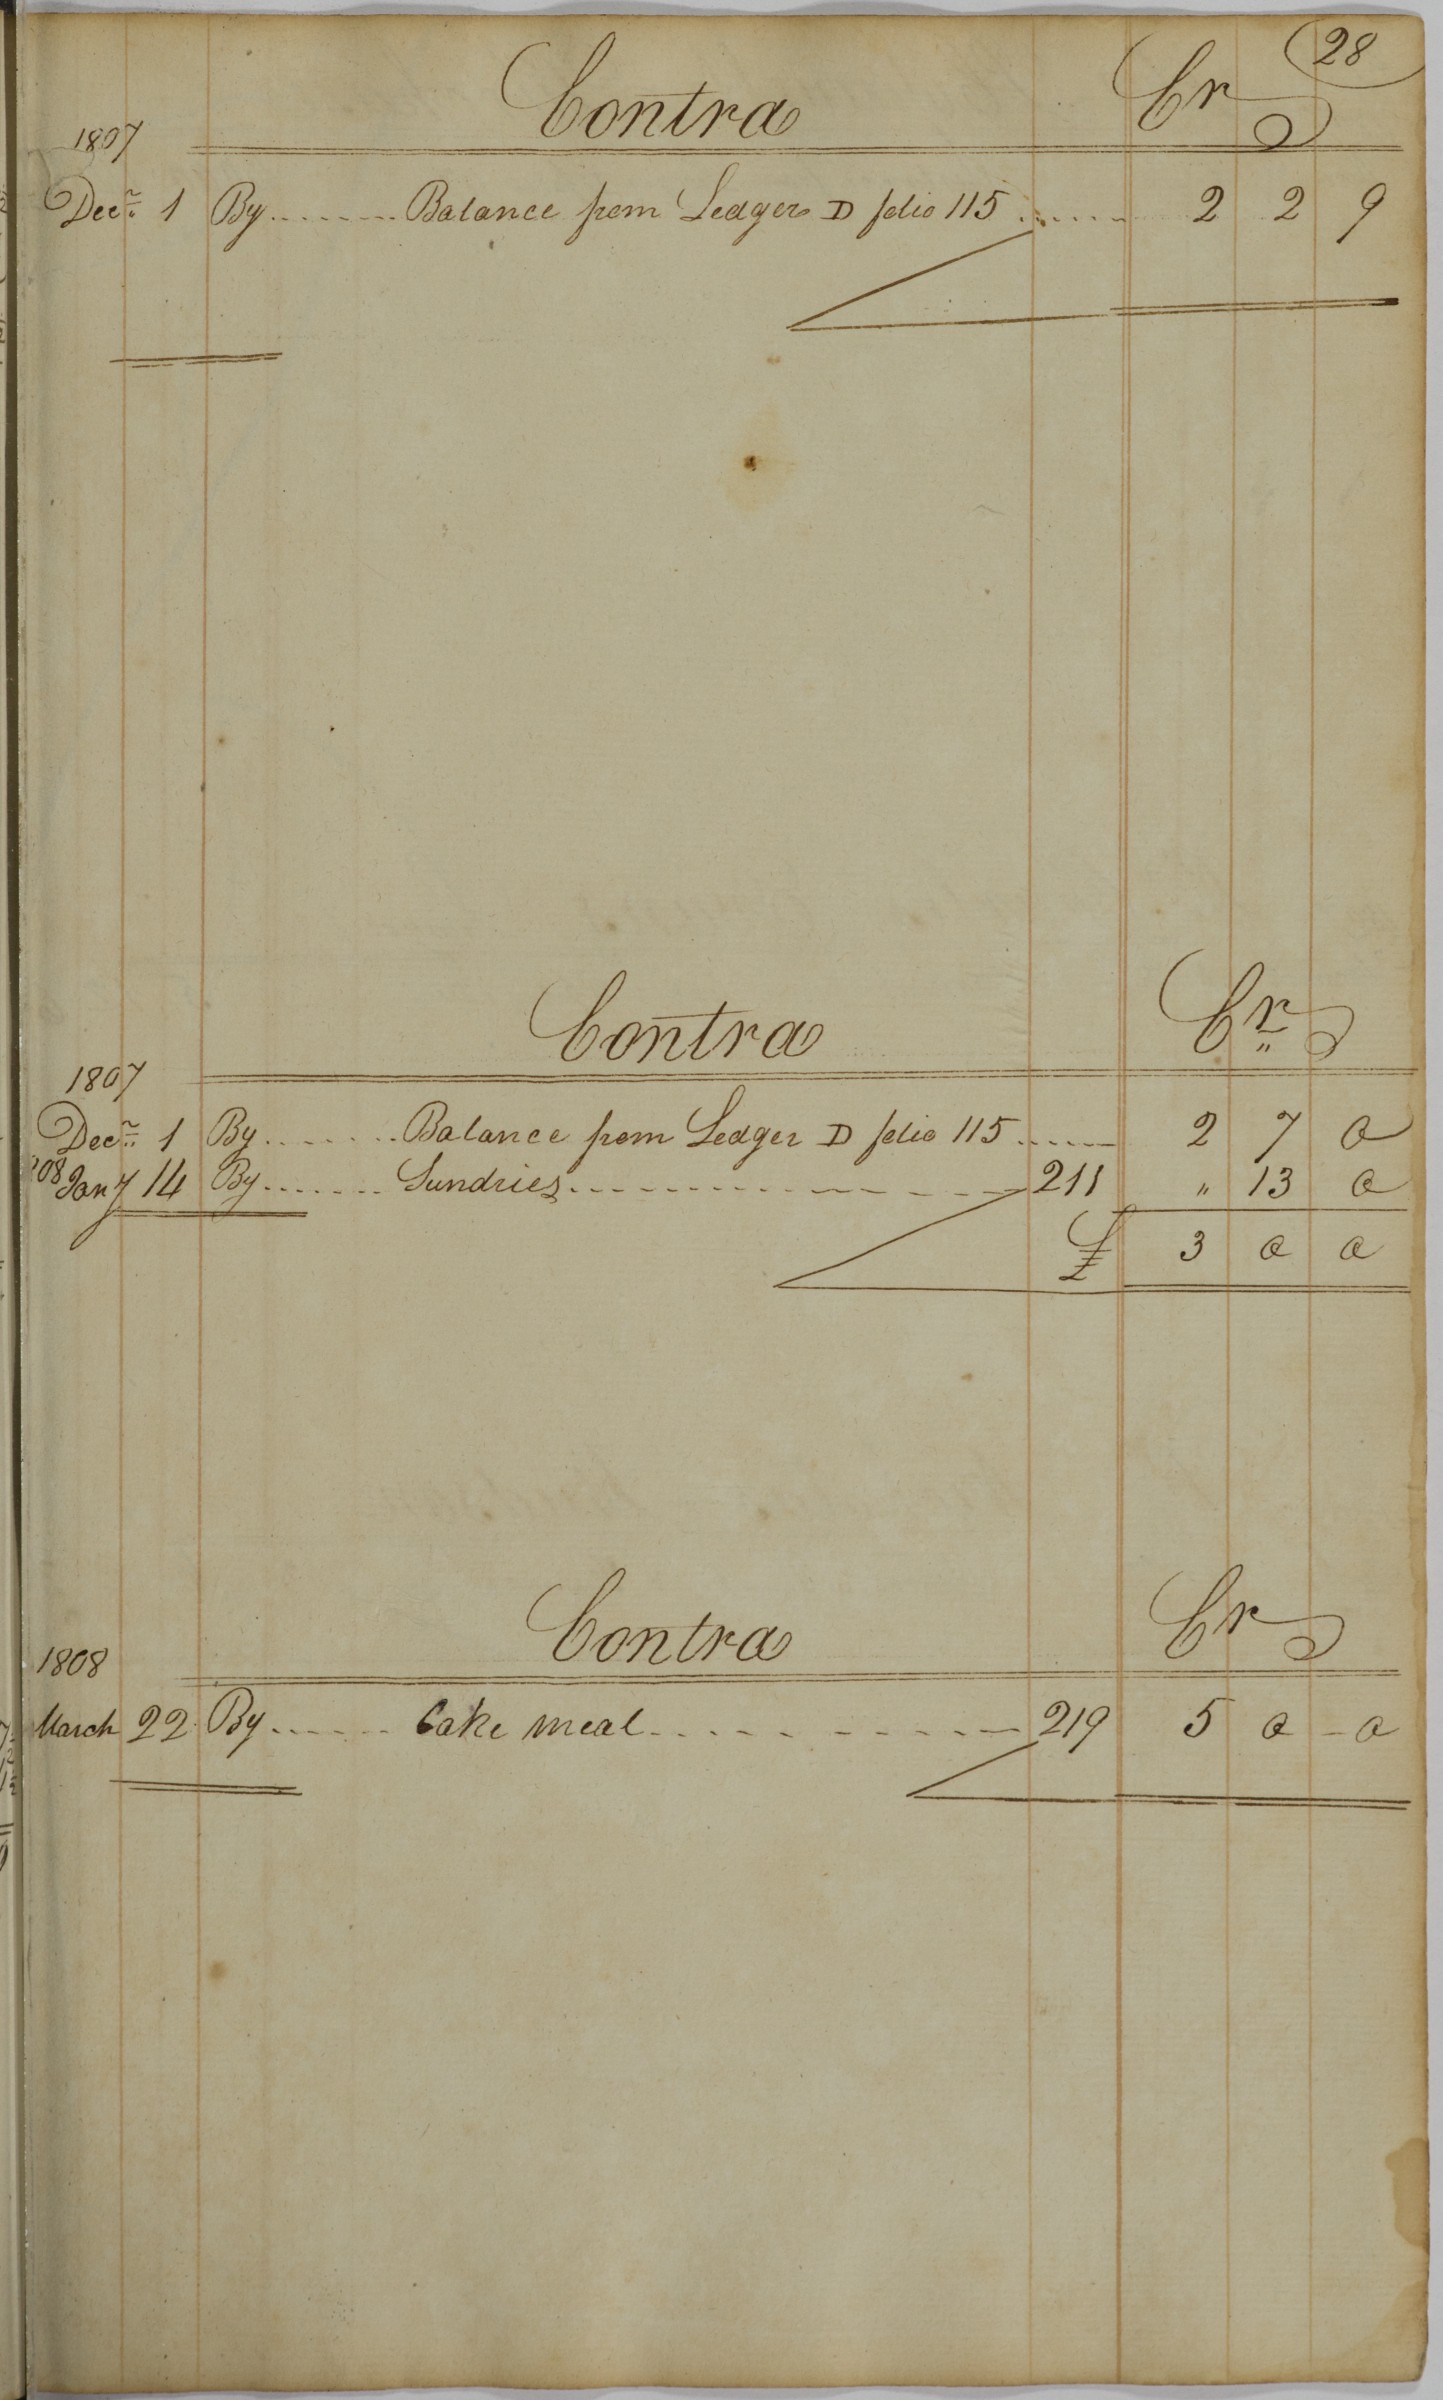 28
Contra Cr
1807
Decr. 1 By ....... Balance from Ledger D folio 115 ...... 2 2 9
Contra Cr
1807
Decr. 1 By ....... Balance from Ledger D folio 115 ...... 2 7 0
'08 Jany 14 By ....... Sundries ........ 211 " 13 0
£ 3 0 0
Contra Cr
1808
March 22 By ...... Cake meal ........ 219 5 0 - 0